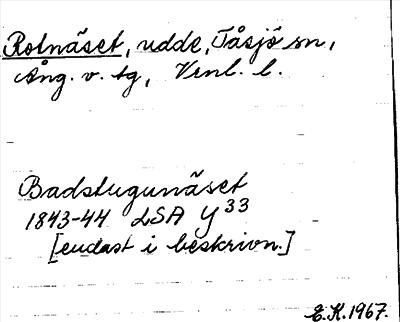 Rotnäset, udde, Tåsjö sn,
Ång. v. tg, Vrnl. l.
Badstugunäset
1843-44 LSA Y 33
[endast i beskrivn.]
E.K. 1967.